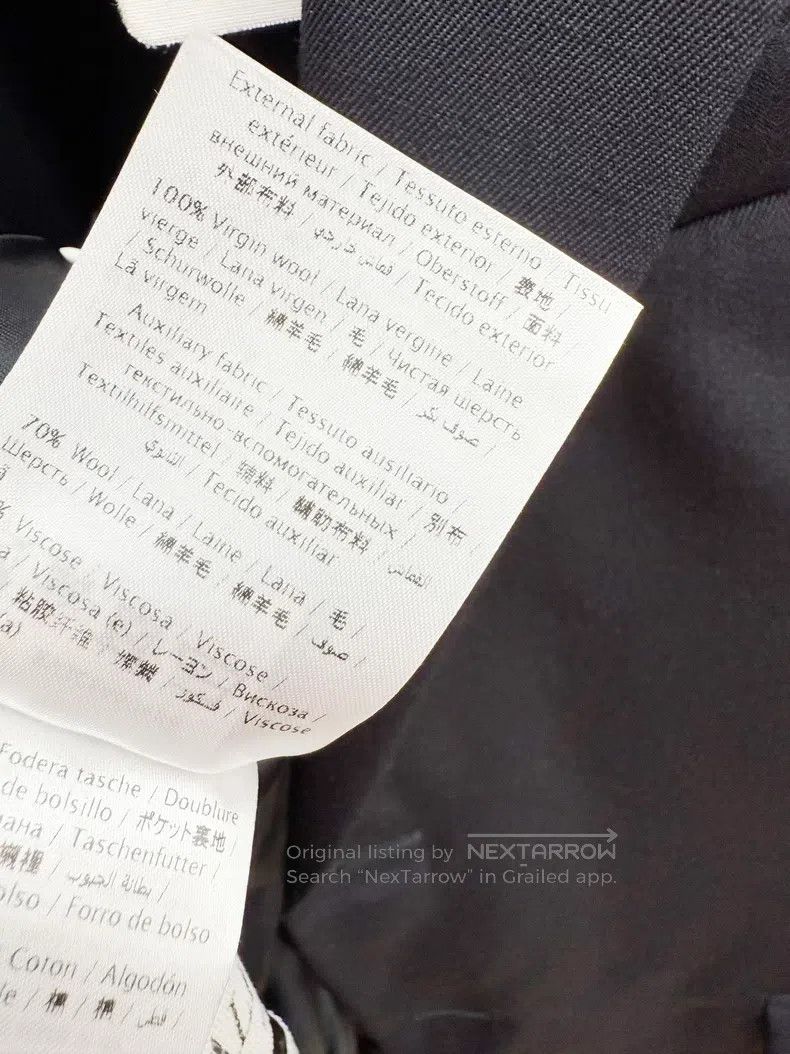 External fabric / Tessuto esterno / Tissu
extérieur / Tejido exterior / 表地 /
внешний материал / Oberstoff / 面料 /
外部布料 / قماش خارجي / Tecido exterior
100% Virgin wool / Lana vergine / Laine
vierge / Lana virgen / 毛 / Чистая шерсть
/ Schurwolle / 綿羊毛 / 綿羊毛 / صوف بكر /
Lã virgem
Auxiliary fabric / Tessuto ausiliario /
Textiles auxiliaire / Tejido auxiliar / 別布 /
текстильно-вспомогательных /
Textilhilfsmittel / 辅料 / 輔助布料 /
/ Tecido auxiliar
70% Wool / Lana / Laine / Lana / 毛 /
Шерсть / Wolle / 綿羊毛 / 綿羊毛 / صوف /
% Viscose / Viscosa / Viscose /
/ Viscosa (e) / レーヨン / Вискоза /
粘胶纤维 / فسكوز / Viscose
(a)
Fodera tasche / Doublure
de bolsillo / ポケット裏地 /
/ Taschenfutter /
/ بطانة الجيوب /
/ Forro de bolso
Coton / Algodón
/ 棉 / 棉 / القطن /
Original listing by NEXTARROW
Search “NexTarrow” in Grailed app.